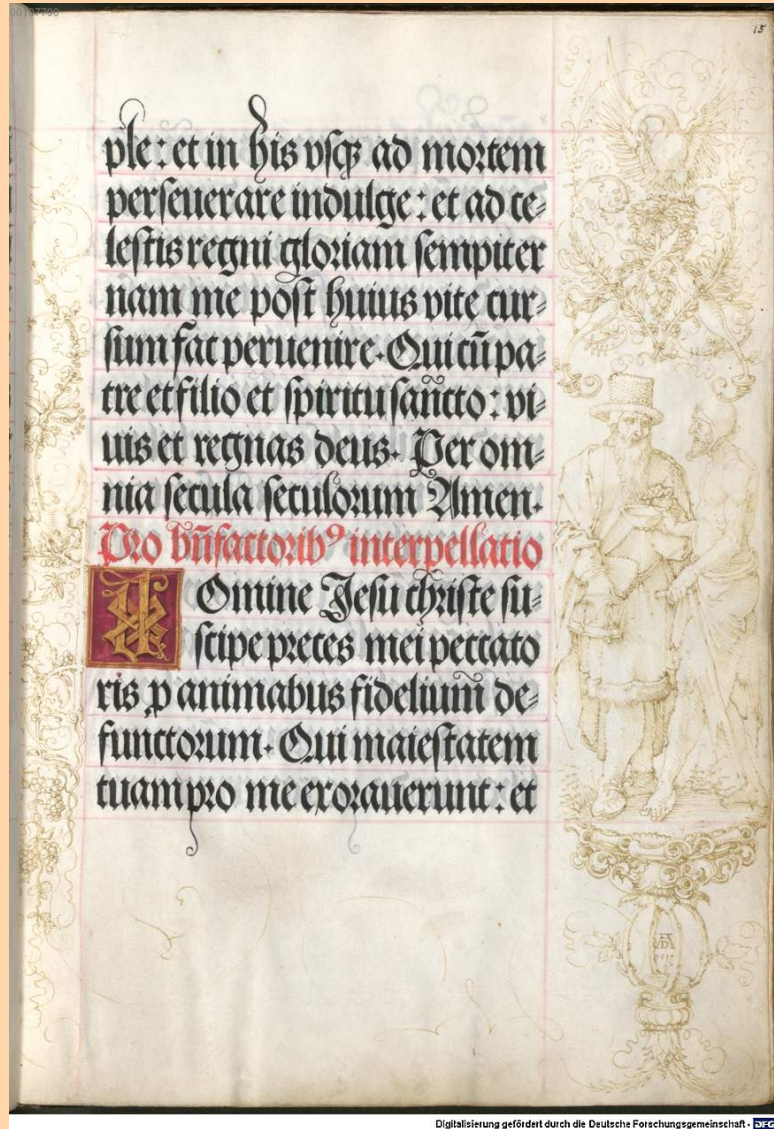 00107790
15
ple : et in his vsqꝫ ad mortem
perseuerare indulge : et ad ce⸗
lestis regni gloriam sempiter
nam me post huius vite cur⸗
sum fac peruenire. Qui cũ pa⸗
tre et filio et spiritu sañcto : vi⸗
uis et regnas deus. Per om⸗
nia secula seculorum Amen.
Pro bñfactoribꝰ interpellatio
Domine Jesu christe su⸗
scipe preces mei peccato
ris ꝓ animabus fidelium̃ de⸗
functorum. Qui maiestatem
tuam pro me exorauerunt : et
AD
1515
Digitalisierung gefördert durch die Deutsche Forschungsgemeinschaft - DFG